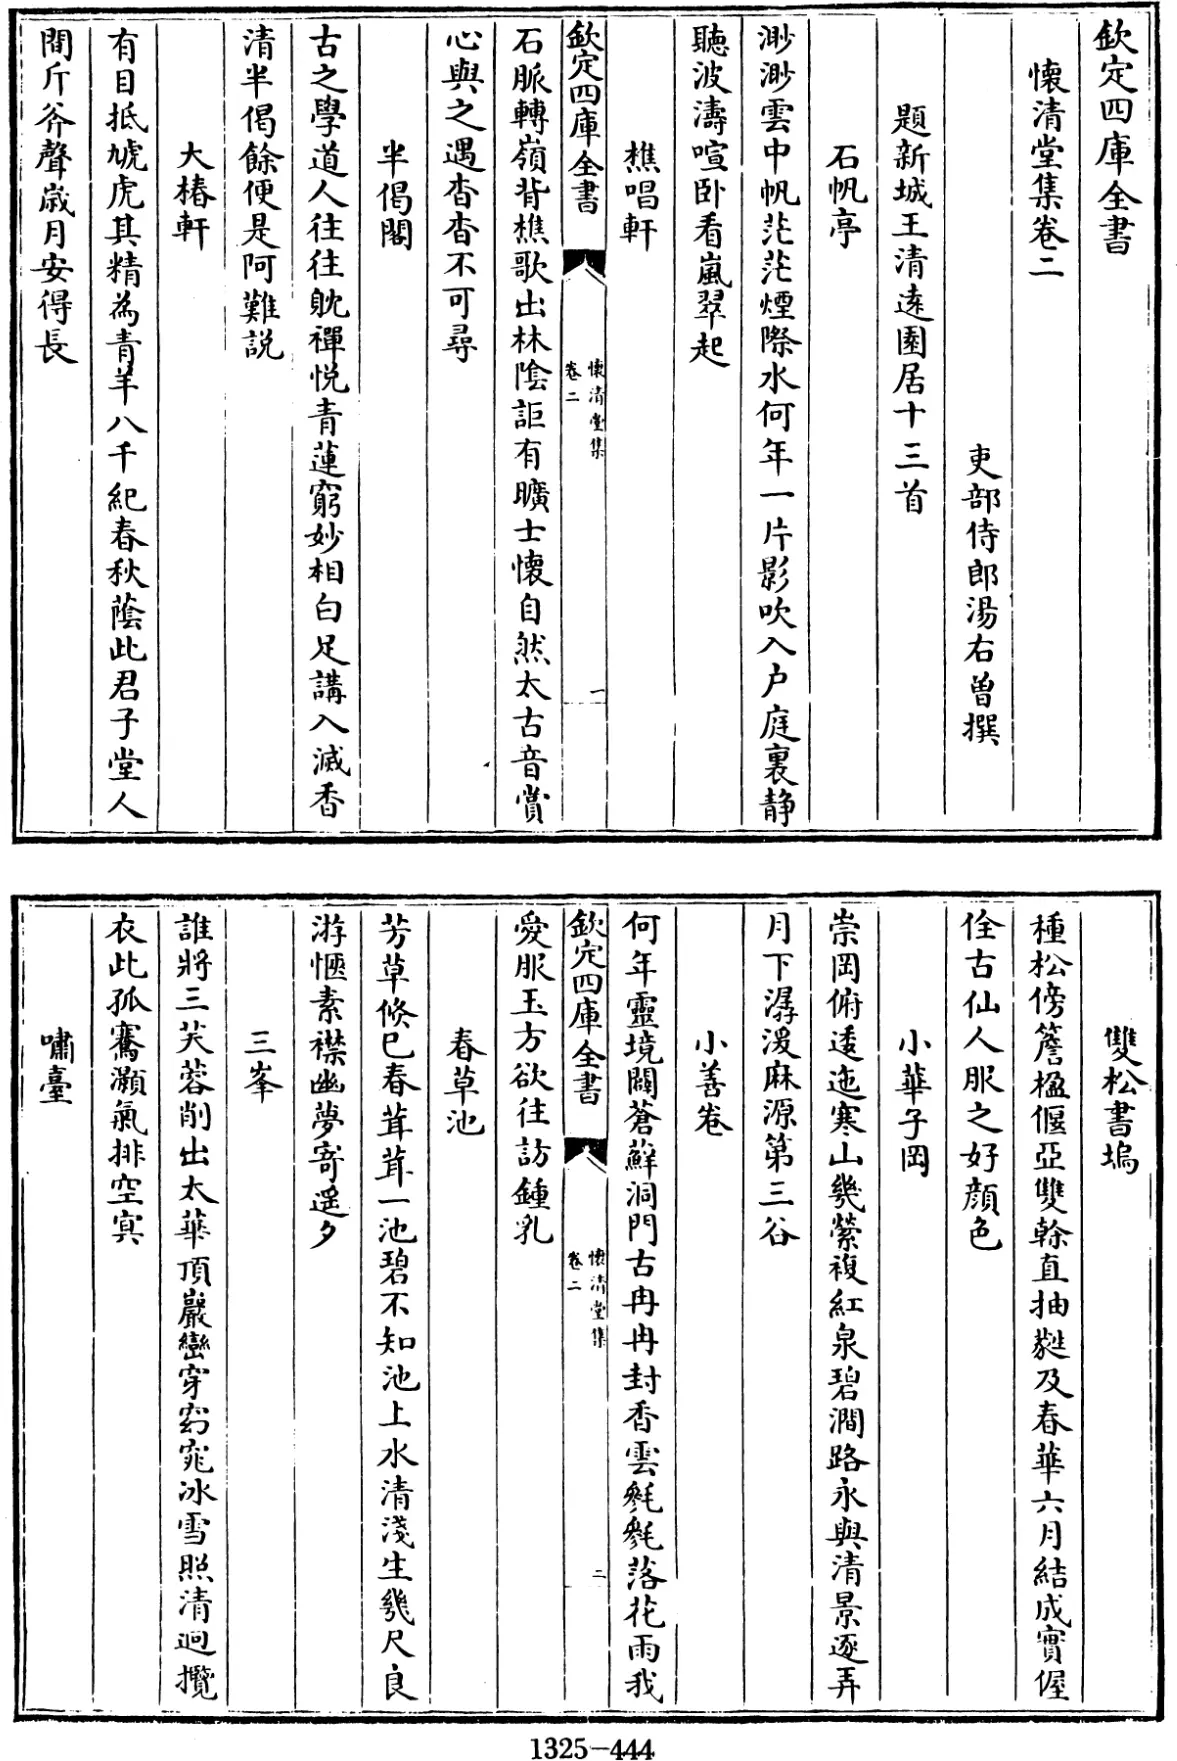 欽定四庫全書
懷清堂集卷二
吏部侍郎湯右曽撰
題新城王清逺園居十三首
石帆亭
渺渺雲中帆茫茫煙際水何年一片影吹入户庭裏静
聽波濤喧卧看嵐翠起
樵唱軒
欽定四庫全書
懷清堂集
卷二
一
石脈轉嶺背樵歌出林陰詎有曠士懷自然太古音賞
心與之遇杳杳不可尋
半偈閣
古之學道人往往躭禪悦青蓮窮妙相白足講入滅香
清半偈餘便是阿難説
大椿軒
有目抵虓虎其精為青羊八千紀春秋蔭此君子堂人
間斤斧聲嵗月安得長
雙松書塢
種松傍簷楹偃亞雙榦直抽㽔及春華六月結成實偓
佺古仙人服之好顔色
小華子岡
崇岡俯逶迤寒山幾縈複紅泉碧澗路永與清景逐弄
月下潺湲麻源第三谷
小善卷
何年靈境闢蒼蘚洞門古冉冉封香雲毿毿落花雨我
欽定四庫全書
懷清堂集
卷二
二
愛服玉方欲往訪鍾乳
春草池
芳草倐已春茸茸一池碧不知池上水清淺生幾尺良
游愜素襟幽夢寄遥夕
三峯
誰將三芙蓉削出太華頂巖巒穿窈窕冰雪照清迥攬
衣此孤騫灝氣排空㝠
嘯臺
1325-444